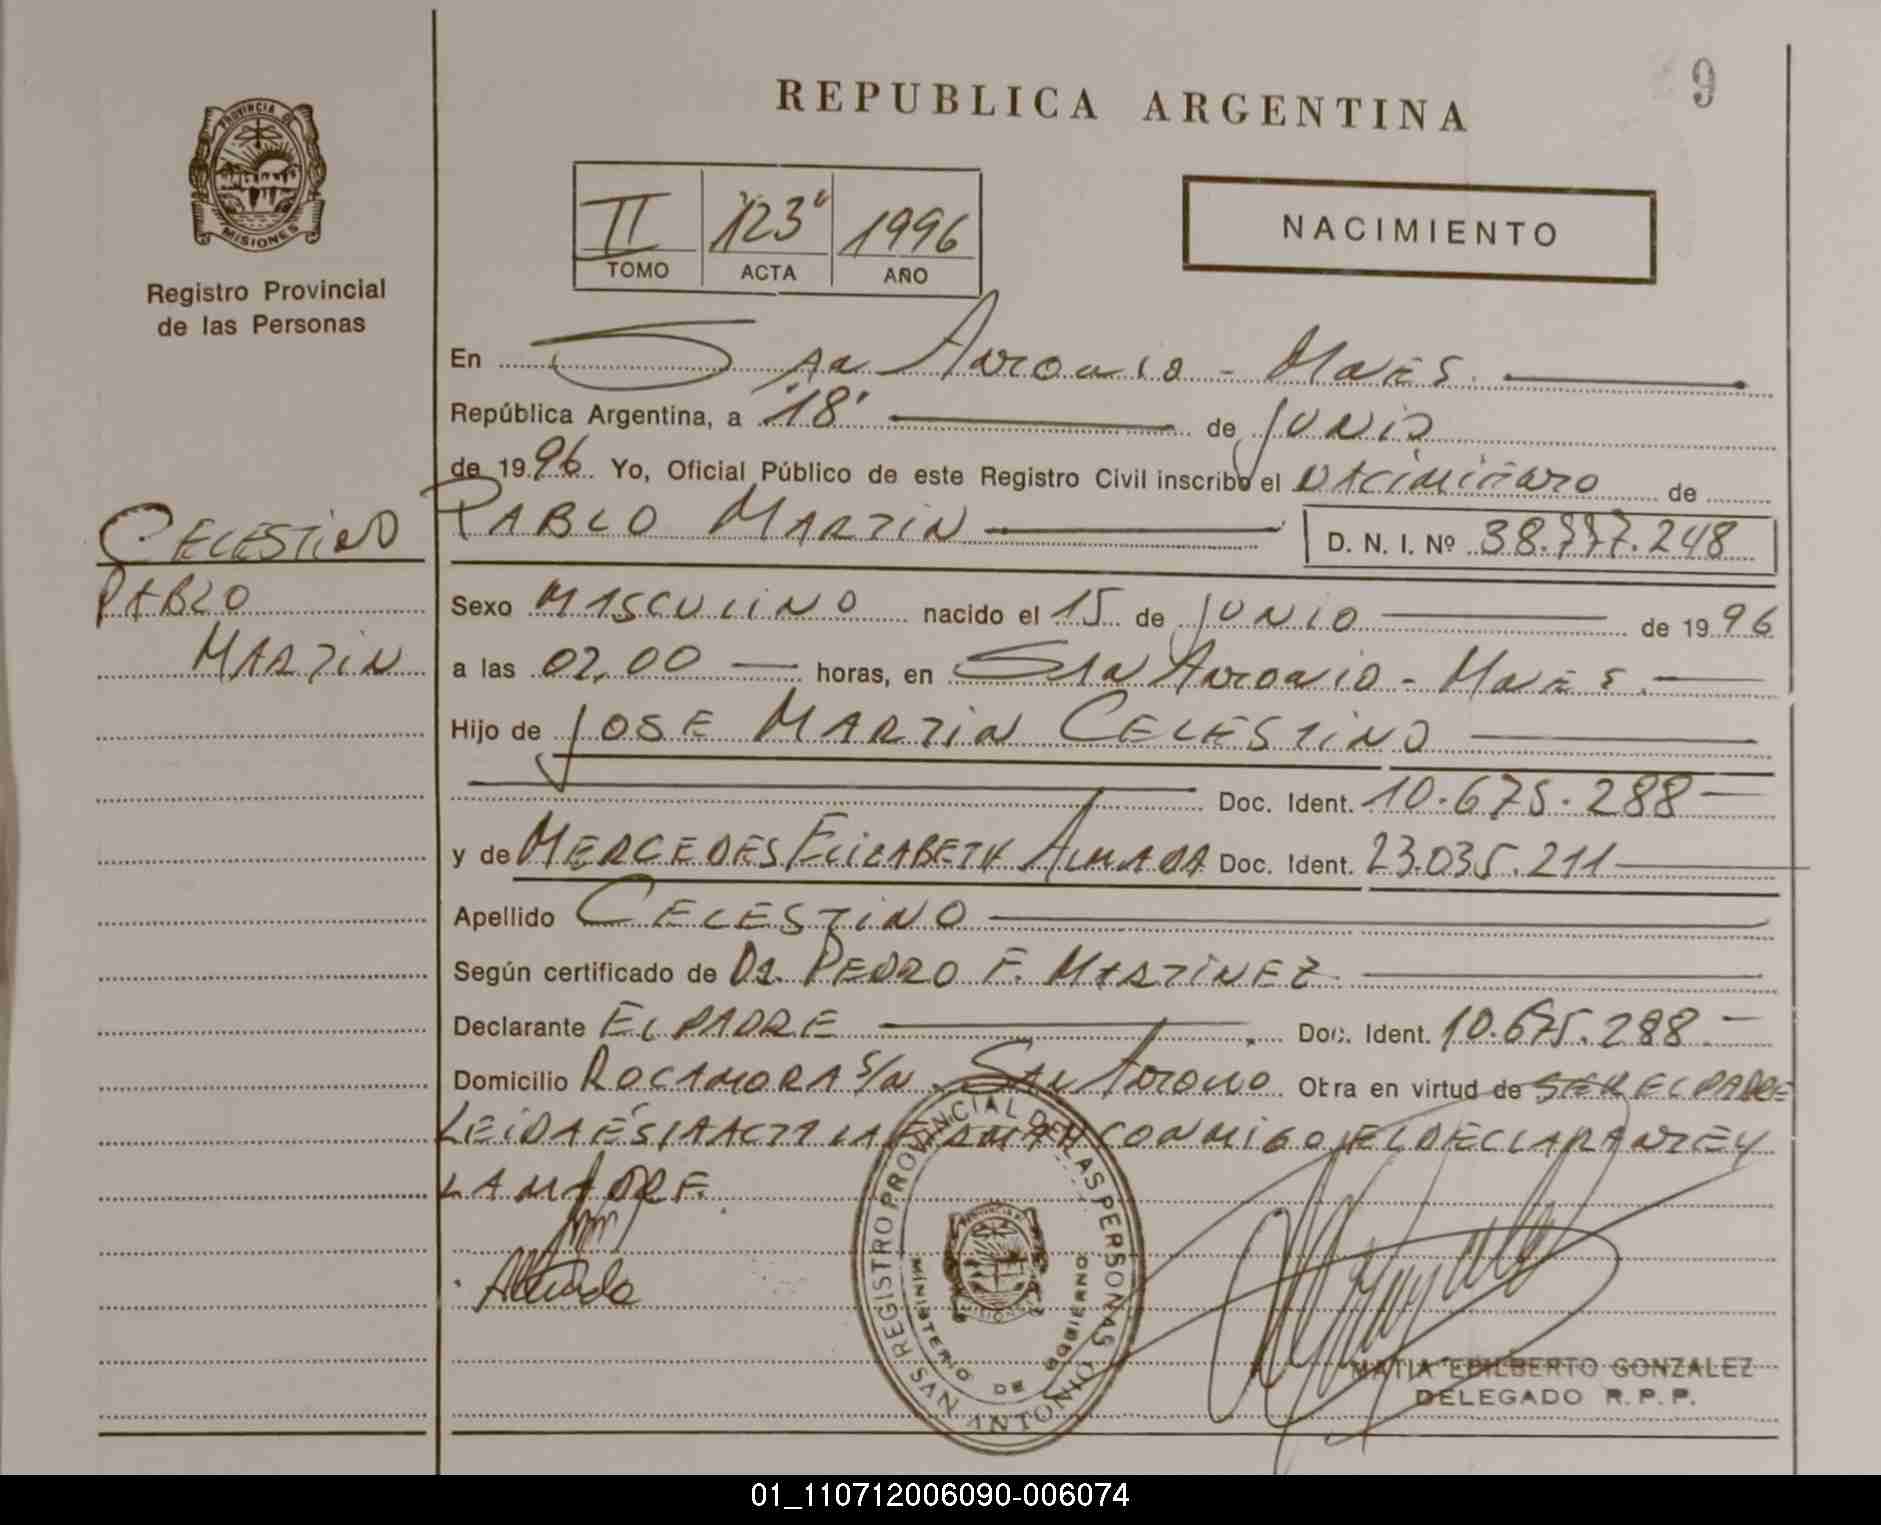 9
REPUBLICA ARGENTINA
PROVINCIA DE
MISIONES
Registro Provincial
de las Personas
II 123 1996
TOMO ACTA AÑO
NACIMIENTO
En San Antonio - Mnes.
República Argentina, a "18" de Junio
de 1996 Yo, Oficial Público de este Registro Civil inscribo el Nacimiento de
CELESTINO
PABLO
MARTIN
PABLO MARTIN D. N. I. Nº 38.777.248
Sexo MASCULINO nacido el 15 de JUNIO de 1996
a las 02,00 horas, en San Antonio - Mnes.
Hijo de JOSE MARTIN CELESTINO
Doc. Ident. 10.675.288
y de MERCEDES ELIZABETH ALMADA Doc. Ident. 23.035.211
Apellido CELESTINO
Según certificado de Dr. PEDRO F. MARTINEZ
Declarante EL PADRE Doc. Ident. 10.675.288
Domicilio ROCAMORA S/N. San Antonio Obra en virtud de SER EL PADRE
LEIDA ESTA ACTA LA FIRMAN CONMIGO EL DECLARANTE Y
LA MADRE.
Almada
REGISTRO PROVINCIAL DE LAS PERSONAS
MINISTERIO DE GOBIERNO
SAN ANTONIO
EDILBERTO GONZALEZ
DELEGADO R.P.P.
01_110712006090-006074